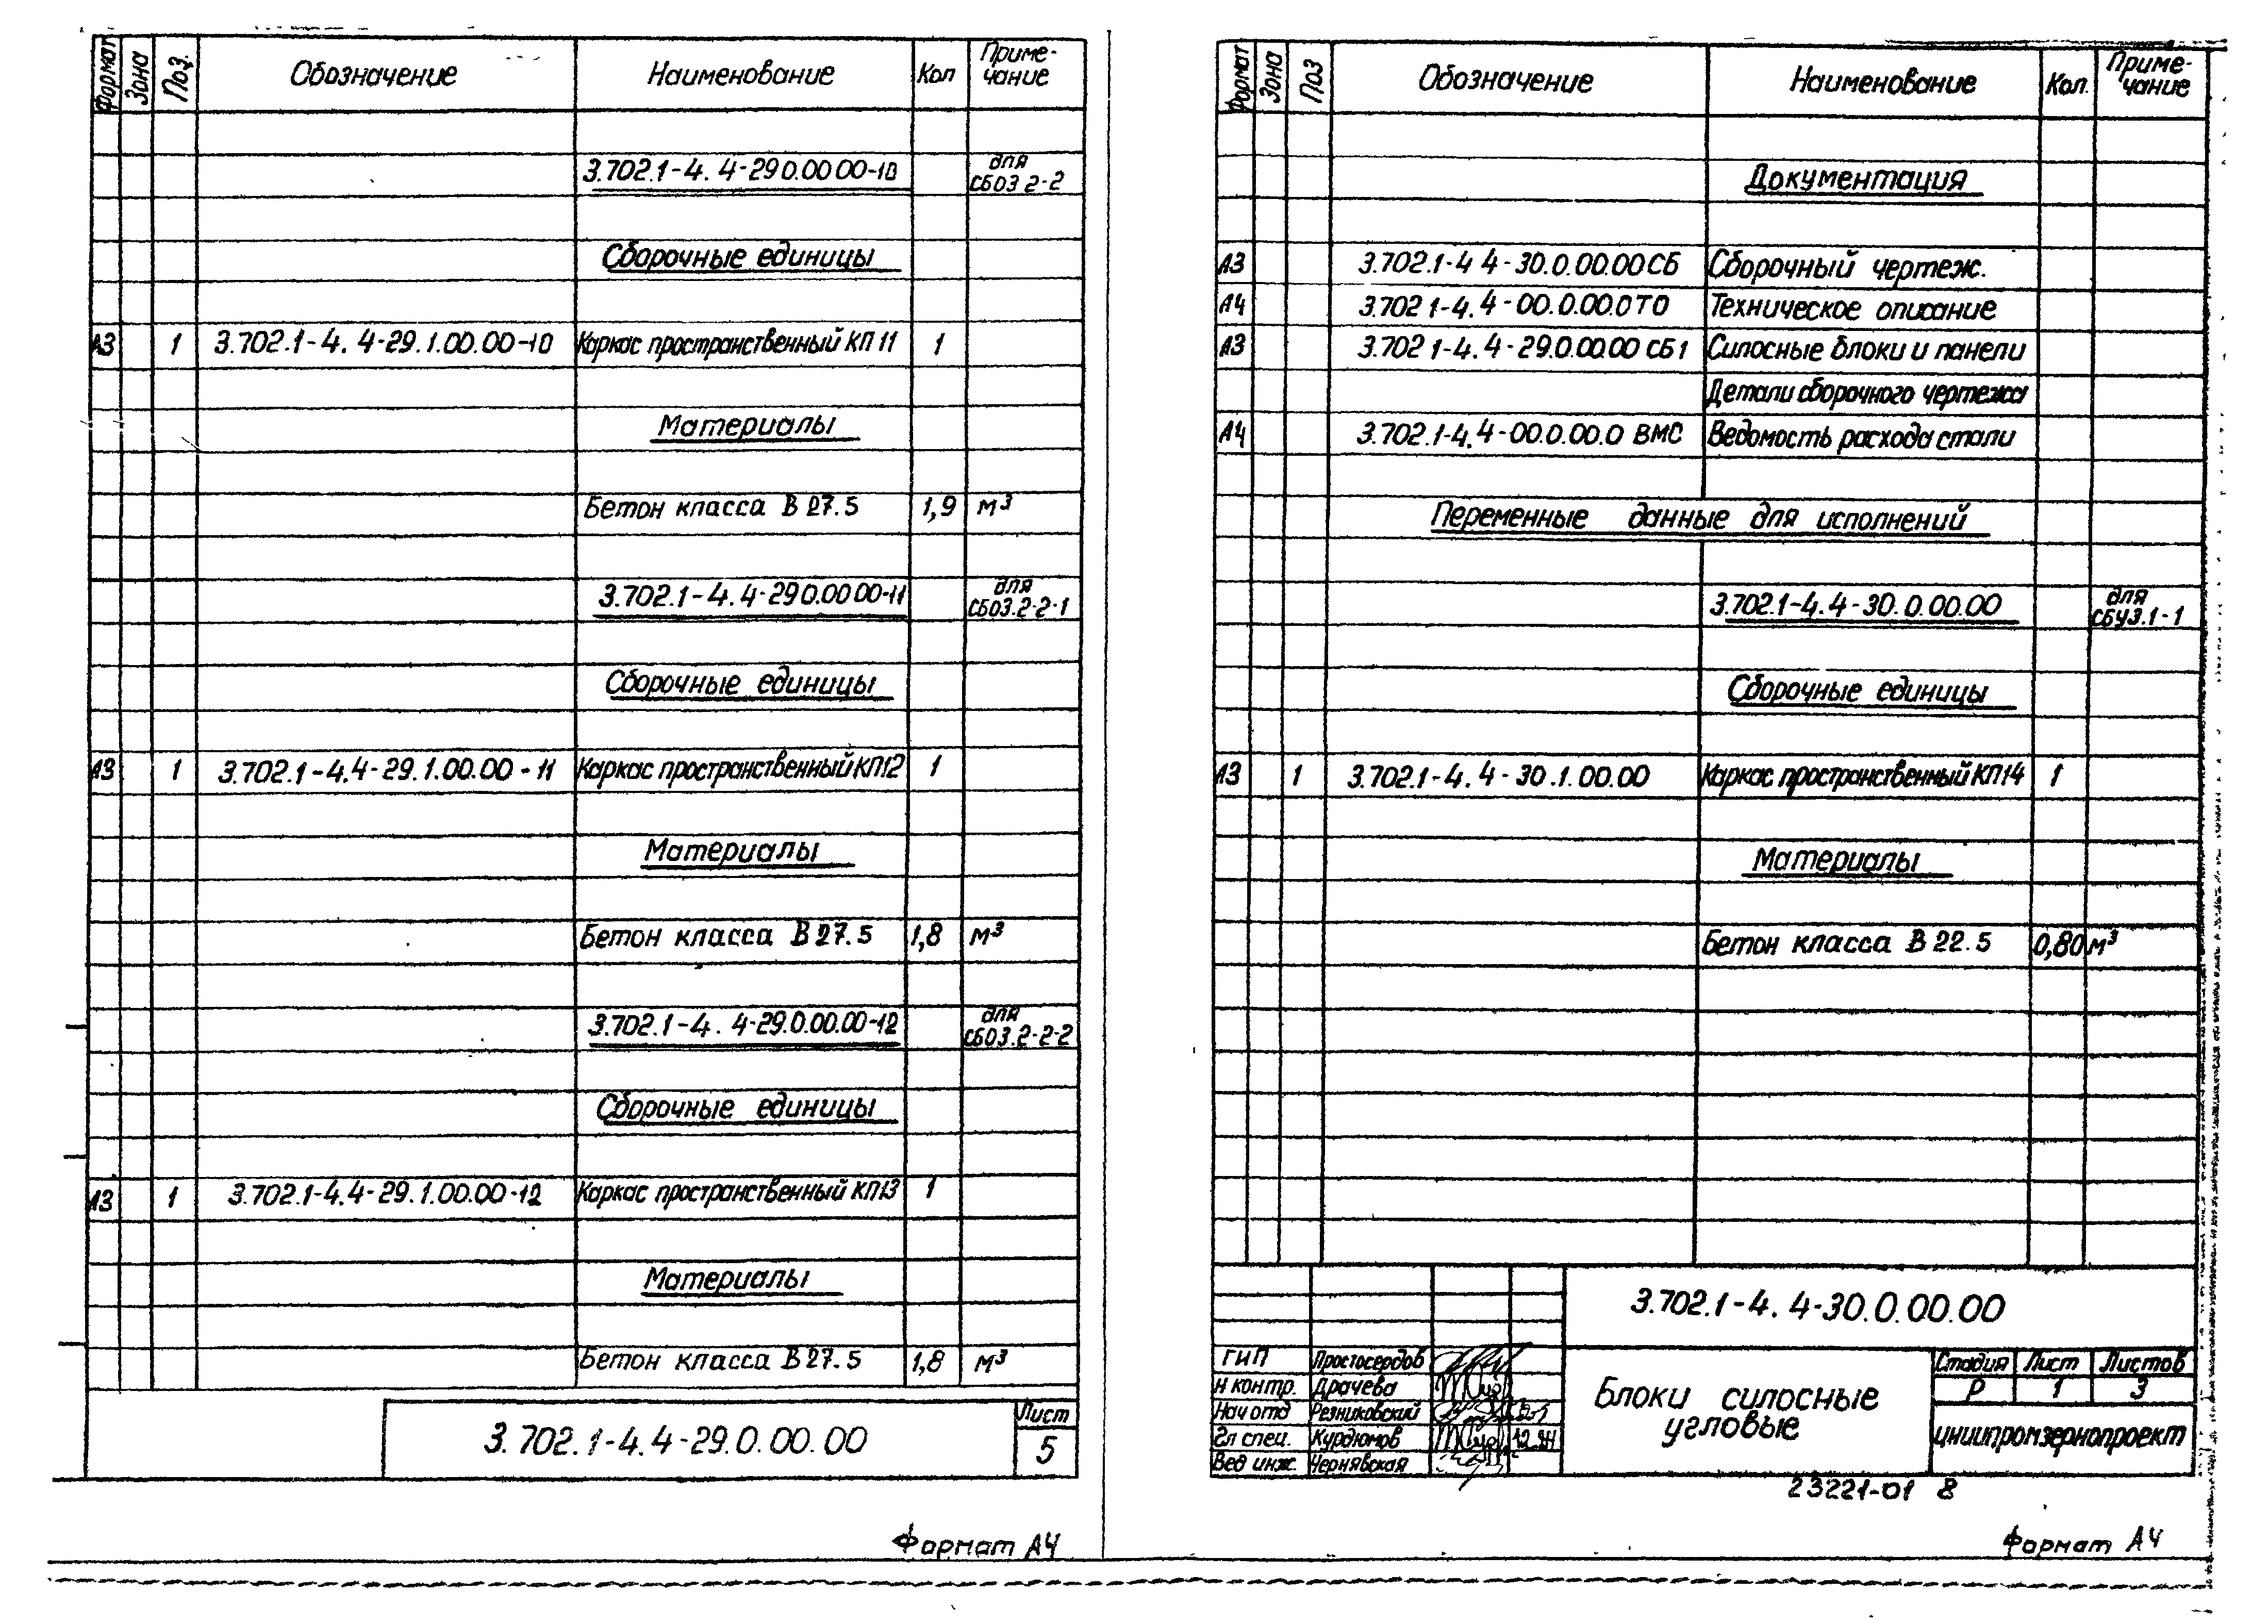 Формат Зона Поз. Обозначение Наименование Кол Приме-
чание
3.702.1-4.4-29 0.00 00-10 для
СБ03 2-2
Сборочные единицы
А3 1 3.702.1-4.4-29.1.00.00-10 Каркас пространственный КП 11 1
Материалы
Бетон класса В 27.5 1,9 м³
3.702.1-4.4-29 0.00 00-11 для
СБ03.2-2-1
Сборочные единицы
А3 1 3.702.1-4.4-29.1.00.00-11 Каркас пространственный КП12 1
Материалы
Бетон класса В 27.5 1,8 м³
3.702.1-4.4-29.0.00.00-12 для
СБ03.2-2-2
Сборочные единицы
А3 1 3.702.1-4.4-29.1.00.00-12 Каркас пространственный КП13 1
Материалы
Бетон класса В 27.5 1,8 м³
3.702.1-4.4-29.0.00.00
Лист
5
Формат А4
Формат Зона Поз Обозначение Наименование Кол. Приме-
чание
Документация
А3 3.702.1-4 4-30.0.00.00 СБ Сборочный чертеж.
А4 3.702 1-4.4-00.0.00.0 ТО Техническое описание
А3 3.702 1-4.4-29.0.00.00 СБ1 Силосные блоки и панели
Детали сборочного чертежа
А4 3.702.1-4.4-00.0.00.0 ВМС Ведомость расхода стали
Переменные данные для исполнений
3.702.1-4.4-30.0.00.00 для
СБУ3.1-1
Сборочные единицы
А3 1 3.702.1-4.4-30.1.00.00 Каркас пространственный КП14 1
Материалы
Бетон класса В 22.5 0,80 м³
3.702.1-4.4-30.0.00.00
ГИП Простосердов
Н контр. Драчева
Нач отд Резниковский
Гл спец. Курдюмов
Вед инж. Чернявская
Блоки силосные
угловые
Стадия Лист Листов
Р 1 3
ЦНИИпромзернопроект
23221-01 8
Формат А4